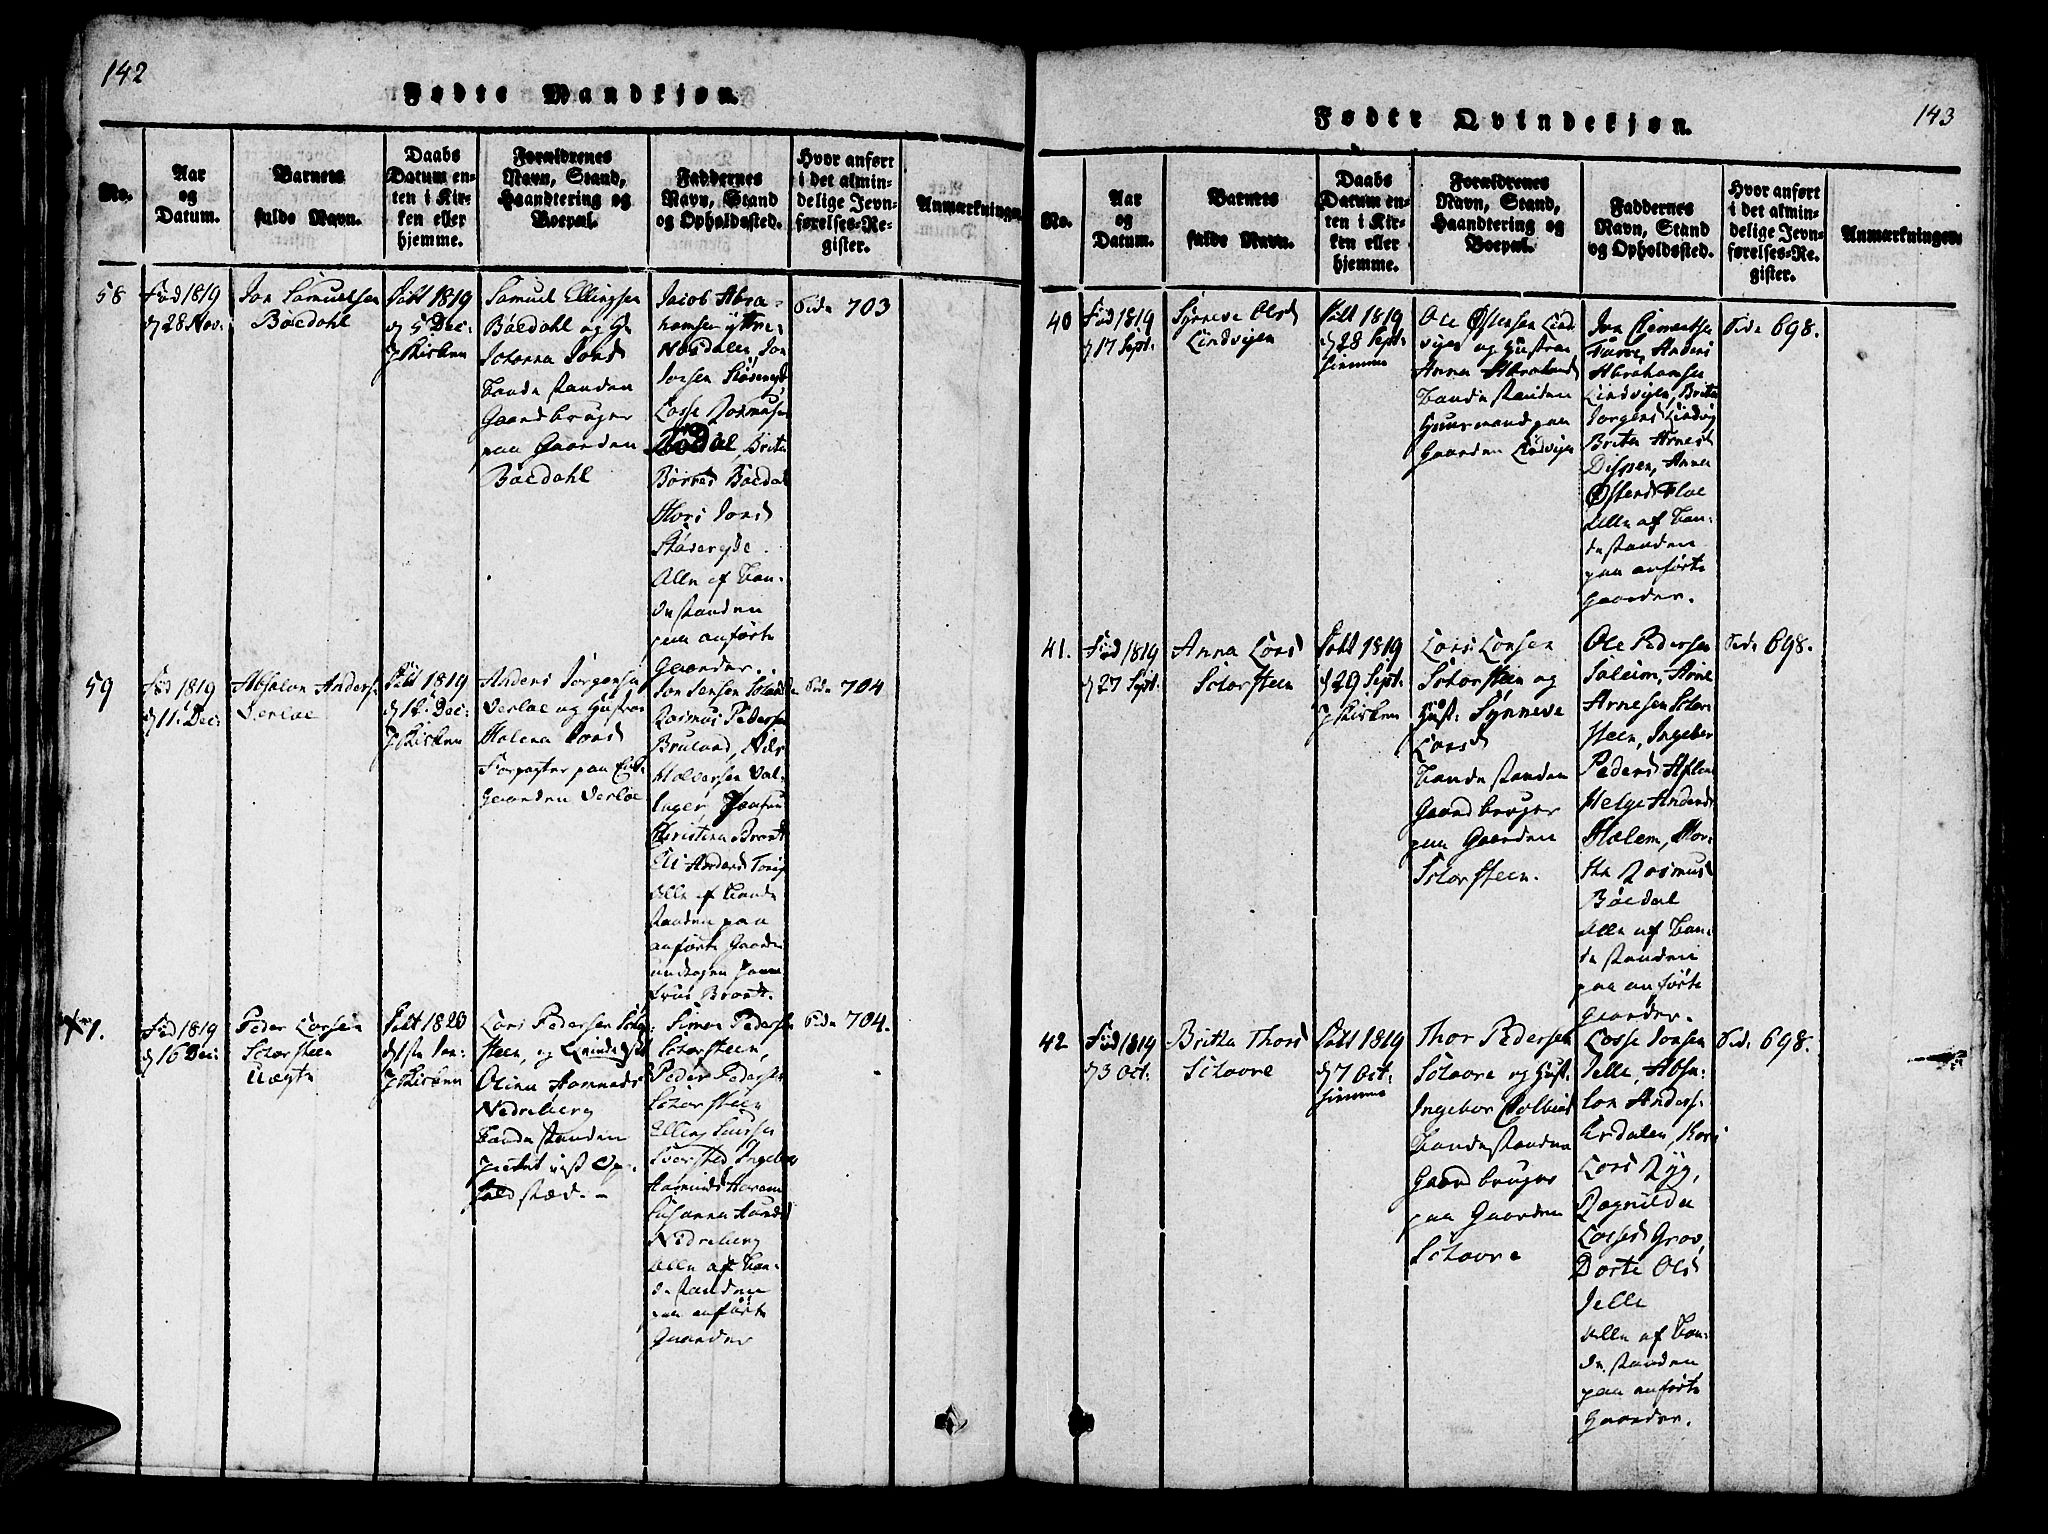 142
Fødte Mandkjøn.
No.
Aar
og
Datum.
Barnets
fulde Navn.
Daabs
Datum en-
ten i Kir-
ken eller
hjemme.
Forældrenes
Navn, Stand,
Haandtering og
Boepæl.
Faddernes
Navn, Stand
og Opholdssted.
Hvor anført
i det almin-
delige Jevn-
førelses-Re-
gister.
Anmærkninger
58
Fød 1819
d 28 Nov:
Jon Samuelsen
Böedahl
Döbt 1819
d 5 Dec:
J Kirken
Samuel Ellingsen
Böedahl og H
Johanna Jonsd
bondestanden
Gaardbruger
paa Gaarden
Böedahl
Jacob Abra-
hamsen yttre
Nosdalen, Jon
Lasse Rasmusen
Brita
Bödal
Jonsd
Alle af bon-
destanden
paa anförte
Gaarder.
Side 703
59
Fød 1819
d 11. Dec:
Absalon Anders
Verløe
Döbt 1819
d 12. Dec:
J Kirken
Anders Jörgensen
Verløe og Hustru
Helena Jonsd
Forpagter paa
Gaarden Verløe
Jon Jensen
Rasmus Pedersen
Bruland, Nils
Inger
Christina Brandt
Alle af bonde
standen paa
anförte Gaarde
undtagen
Brandt.
Side 704
1.
Fød 1819
d 16 Dec:
Peder Larsen
Storsteen
Uægte
Döbt 1820
d 1ste Jan:
J Kirken
Lars Pedersen Stor
steen, og Qvinde
Olina
Nedreberg
bondestanden
Op-
holdsted. -
Simon Pedersen
Storsteen,
Peder Pedersen
Storsteen
Elling
Ingebor
Susanna
Nedreberg
Alle af bon-
destanden
paa anförte
Gaarder
Side 704.
143
Fødte Qvindekjøn.
No.
Aar
og
Datum.
Barnets
fulde Navn.
Daabs
Datum en-
ten i Kir-
ken eller
hjemme.
Forældrenes
Navn, Stand,
Haandtering og
Boepæl.
Faddernes
Navn, Stand
og Opholdssted.
Hvor anført
i det almin-
delige Jevn-
førelses-Re-
gister.
Anmærkninger.
40
Fød 1819
d 17 Sept:
Synneve Olsd
Lindvigen
Döbt 1819
d 28 Sept:
hjemme
Ole Østensen Lind
vigen og Hustru
Anna Abrahamsd
bondestanden
Huusmand paa
Gaarden Lindvigen
Jon Clementsen
Anders
Abrahamsen
Lindvigen, Brita
Jorgensd Lindvig
Brita Arnesd
Anna
Østensd Floe
Alle af bon-
destanden
paa anförte
Gaarder.
Side 698.
41.
Fød 1819
d 27 Sept:
Anna Larsd
Storsteen
Döbt 1819
d 29 Sept:
J Kirken
Lars Larsen
Storsteen og
Hust: Synneve
Larsd
bondestanden
Gaardbruger
paa Gaarden
Storsteen.
Ole Pedersen
Soleim, Arne
Arnesen Stor-
steen, Ingebor
Pedersd
Helge Andersd
Mar-
tha Rasmusd
Böedal
Alle af bon-
destanden
paa anförte
Gaarder.
Side 698.
42
Fød 1819
d 3 Oct:
Britha Thorsd
Stavre
Döbt 1819
d 7 Oct:
hjemme
Thor Pedersen
Stavre og Hust:
Ingebor
bondestanden
Gaardbruger
paa Gaarden
Stavre
Lasse Jonsen
Jelle, Absa-
lon Anders-
Erdalen, Kari
Larsd Ryg,
Ragnilda
Lassesd Grov,
Dorte Olsd
Jelle
Alle af bon-
destanden
paa anförte
Gaarder.
Side 698.